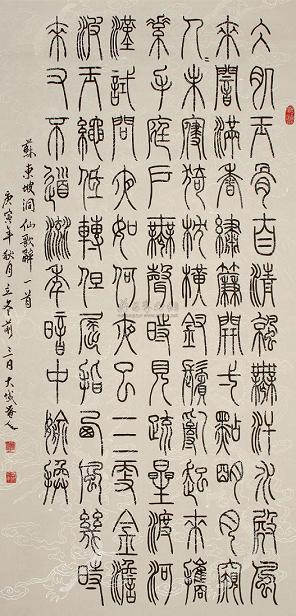 冰肌玉骨自清涼無汗水殿風
來闇滿香繡簾開弌點明月窺
人〻未寢欹枕橫釵鬢亂起來攜
素手庭戶無聲時見疏星渡河
漢試問夜如何夜已三更金澹
波玉繩低轉但屈指西風幾時
來又不道流年暗中偷換
蘇東坡洞仙歌辭一首
庚寅年秋月立冬前三日大成